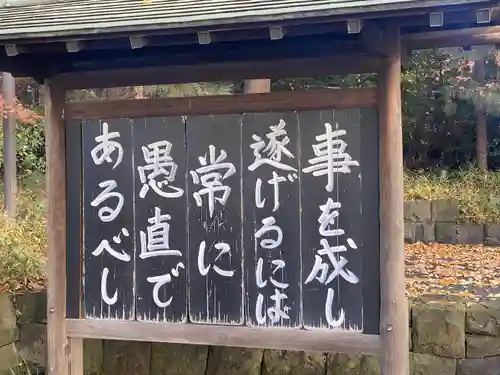 事を成し
遂げるには
常に
愚直で
あるべし